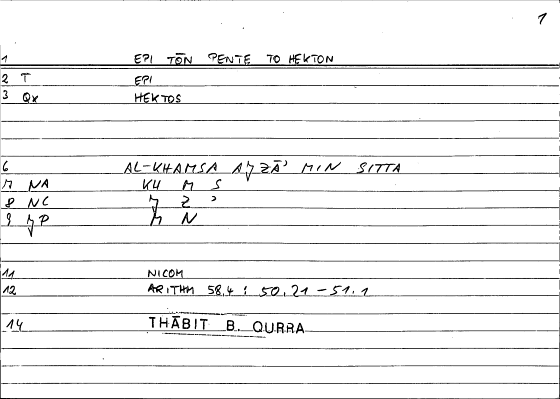 1
1 EPI TŌN PENTE TO HEKTON
2 T EPI
3 Qx HEKTOS
6 AL-KHAMSA AǦZĀʾ MIN SITTA
7 NA KH M S
8 NC Ǧ Z ʾ
9 ǦP M N
11 NICOM
12 ARITHM 58,4 : 50,21-51,1
14 THĀBIT B. QURRA